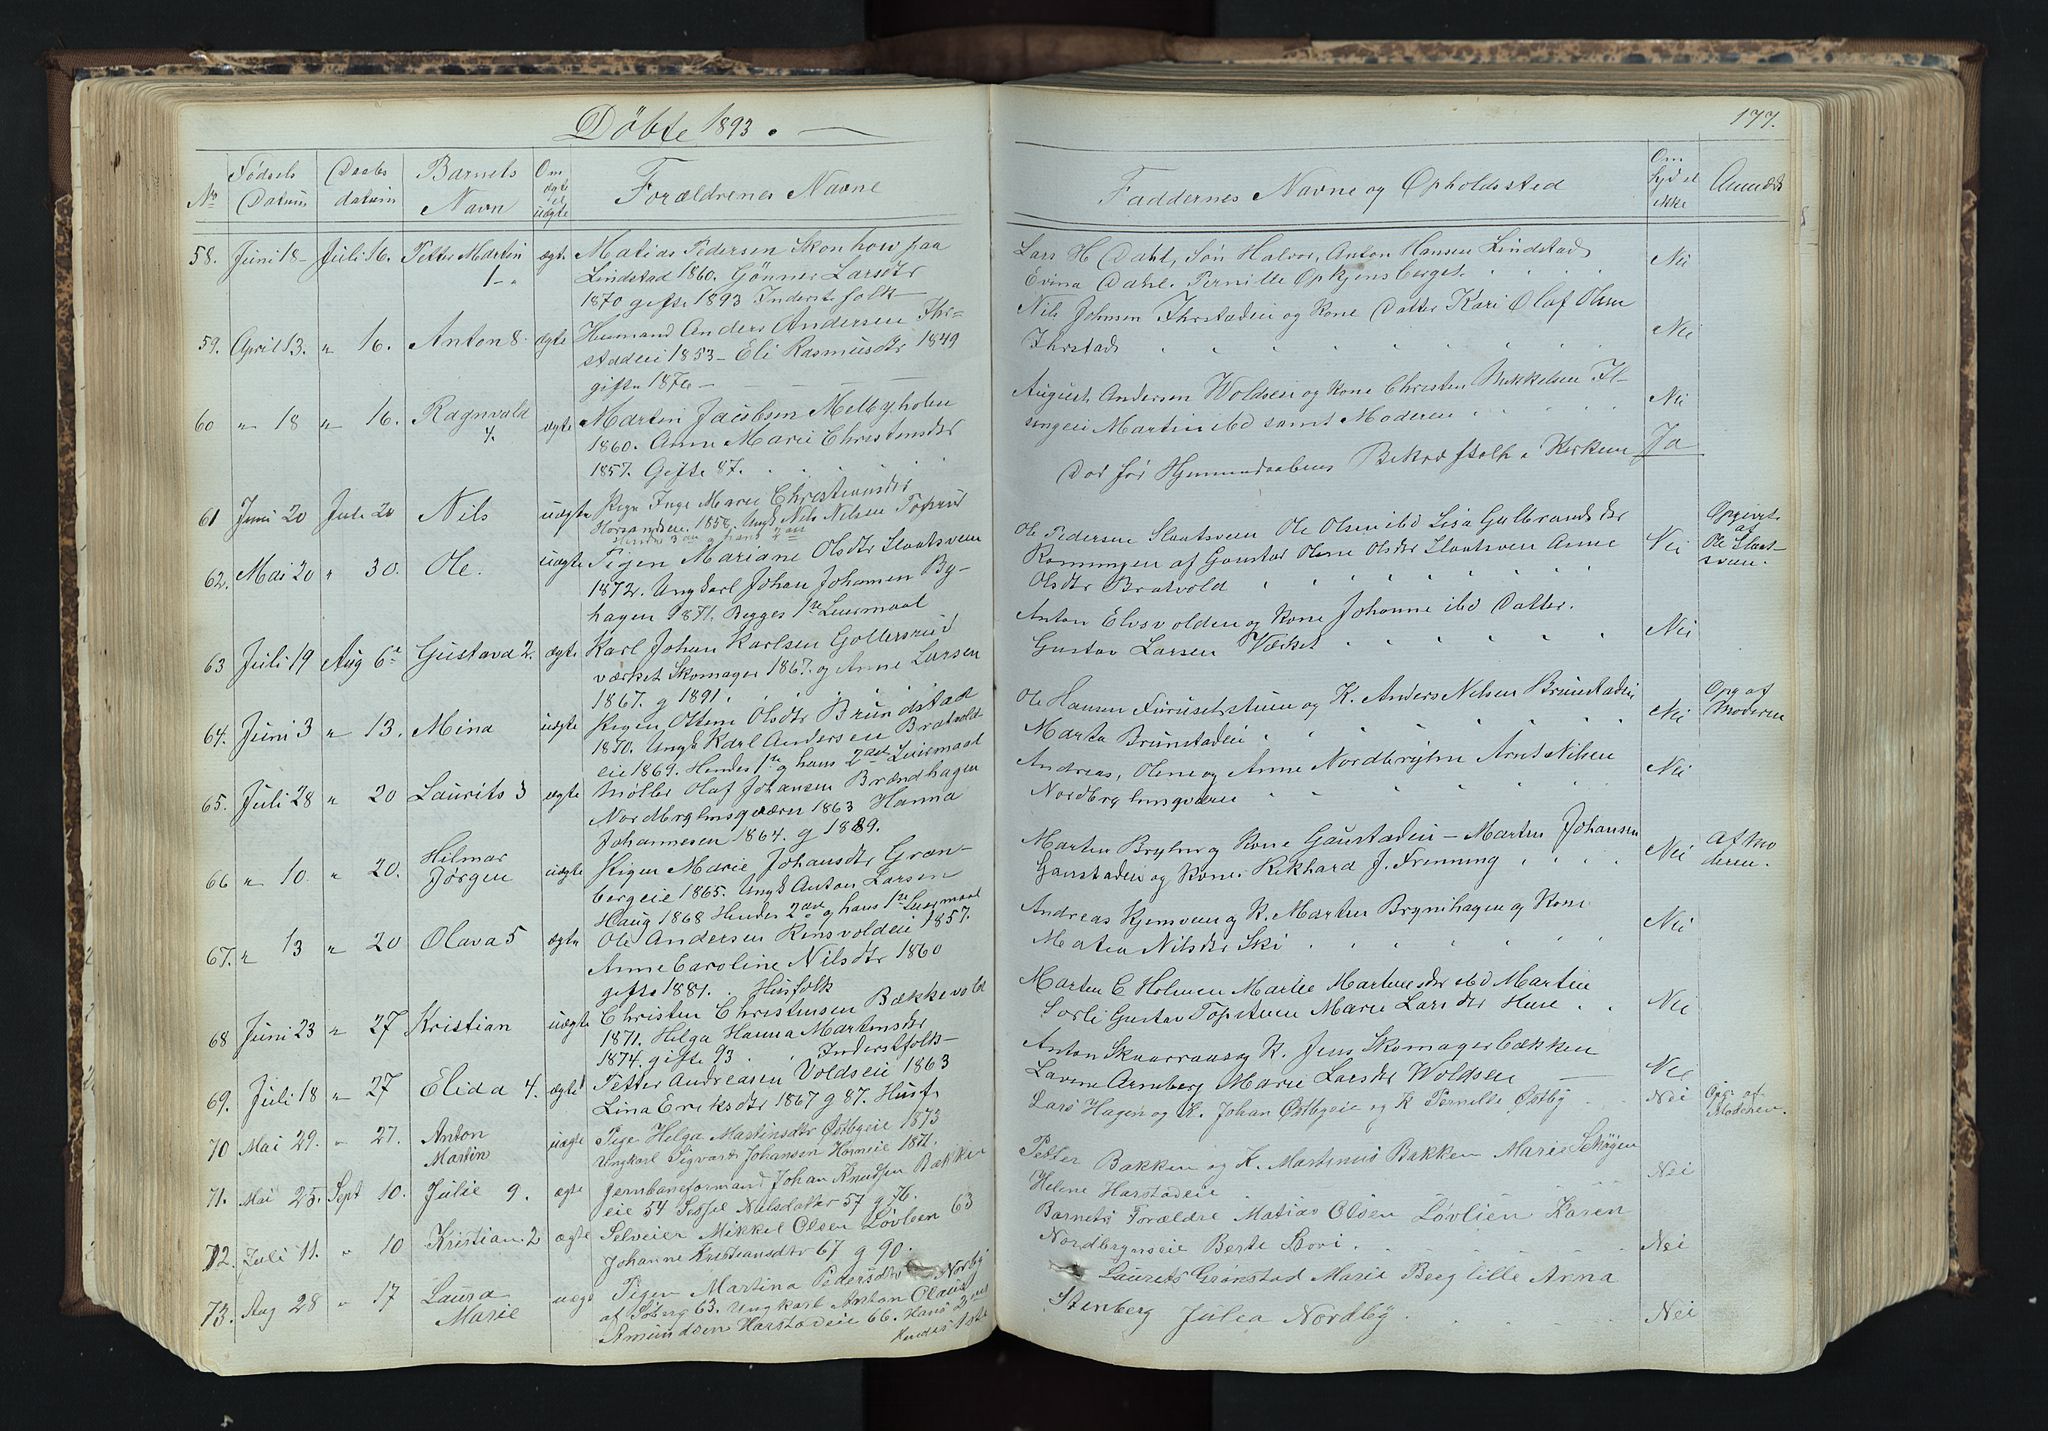 Döbte 1893.
177.
No
Fødsels Datum
Daabs datum
Barnets Navn
Om ægte el uægte
Forældrenes Navne
Faddernes Navne og Opholdssted
Om Syd el ikke
58. Juni 18 Juli 16. Petter Martin 1 ægte Matias Pedersen paa
Lindstad 1860. Gönner Larsdtr
1870 gifte 1893 Inderstefolk
Lars H Dahl, Søn Halvor, Anton Hansen Lindstad
Evina Dahl. Pernille Nei
59. April 13. " 16. Anton 8. ægte Husmand Anders Andersen Ihr=
stadeie 1853 - Eli Rasmusdtr 1849
gifte 1876
Nils Johnsen Ihrstadeie og Kone Datter Kari Olaf Olsen
Ihrstad Nei
60 " 18 " 16. Ragnvald 4. ægte Martin Jacobsen Melbyholen
1860. Anne Marie Christensdtr
1857. Gifte 87.
August Andersen Woldseie og Kone Christen Mikkelsen
Martin ibd samt Moderen Nei
61 Juni 20 Juli 20 Nils uægte Pige Inge Marie Christiansdtr
1856. Ungk Nils Nelsen Toperud
Hendes 3die og hans 2den
Død før Hjemmedaabens Bekræftelse i Kirken Ja
62. Mai 20 " 30. Ole. uægte Pigen Mariane Olsdtr Slaatsveen
1872. Ungkarl Johan Johansen By-
hagen 1871. Begges 1ste Leiermaal
Ole Pedersen Slaatsveen Ole Olsen ibd Lisa Gulbrandsdtr
af Gaustad Olene Olsdtr Slaatsveen Anne
Olsdtr Bratvold Nei
Opgivet af Ole Slaatsveen.
63 Juli 19 Aug 6te Gustava 2. ægte Karl Johan Karlsen
værket Skomager 1867. og Anne Larsen
1867. g 1891.
Anton Elvsvolden og Kone Johanne ibd Datter.
Gustav Larsen Værket Nei
64. Juni 3 " 13. Mina uægte Pigen Oline Olsdtr Brundstad
1870. Ungk Karl Andersen Bratvold-
eie 1869. Hendes 1ste og hans 2det Leiermaal
Ole Hansen og K. Anders Nilsen Brunstadeie
Marta Brunstadeie Nei
Opg af Moderen
65. Juli 28 " 20 Laurits 3 ægte Møller Olaf Johansen Brændhagen
1863 Hanna
Johannesen 1864. g 1889.
Andreas, Olene og Anne Nordbryhn Arnt Nilsen
Nei
66 " 10. " 20. Hilmar Jörgen uægte Pigen Marie Johansdtr Gran-
bergeie 1865. Ungk Anton Larsen
Haug 1868 Hendes 2det og hans 1ste Leiermaal
Marten Bryhn og Kone Gaustadeie - Marten Johansen
Gaustadeie og Kone. Rikhard J. Frenning Nei
af Moderen.
67. " 13 " 20 Olava 5 ægte Ole Andersen Rensvoldeie 1857.
Anne Caroline Nilsdtr 1860
gifte 1881. Husfolk
Andreas Kjemveen og K. Marten Brynihagen og Kone
Matea Nilsdtr Ski Nei
68 Juni 23 " 27 Kristian uægte Christen Christensen Bækkevold
1871. Helga Hanna Martinsdtr
1874. gifte 93. Inderstfolk
Marten C Holmen Marlie Martinsdtr ibd Martin
Sorli Gustav Marie Larsdtr Nei
69. Juli 18 " 27 Elida 4. ægte Petter Andreasen Voldseie 1863
Lina Eriksdtr 1867 g 87. Husf.
Anton og K. Jens Skomager Bækken
Lavine Arneberg Marie Larsdtr Woldseie Nei
70 Mai 29. " 27. Anton Martin uægte Pige Helga Martinsdtr Østbyeie 1873
Ungkarl Sigvart Johansen 1871.
Lars Hagen og K. Johan Østbyeie og K Pernille Østby Nei
Opg. af Moderen.
71. Mai 25. Sept 10. Julie 9. ægte Jernbaneformand Johan Knudsen Bækken
eie 54 Sissel Nilsdatter 57 g 76.
Petter Bakken og K. Martinus Bakken Marie Skögen
Helene Harstadeie Nei
72. Juli 11. " 10 Kristian. 2 ægte Selveier Mikkel Olsen Løvlien 63
Johanne Kristiansdtr 67 g 90.
Barnets Forældre Matias Olsen Løvlien Karen
Nordbrynseie Berte Nei
73. Aug 28 " 17 Laura Marie uægt Pigen Martina Pedersdtr Nordby
af 63. Ungkarl Anton Olaus
Amundsen Harstadeie 66. Hans 2den
Hendes 1ste
Laurits Grønstad Marie Berg lille Anna
Stenberg Julia Nordby Nei